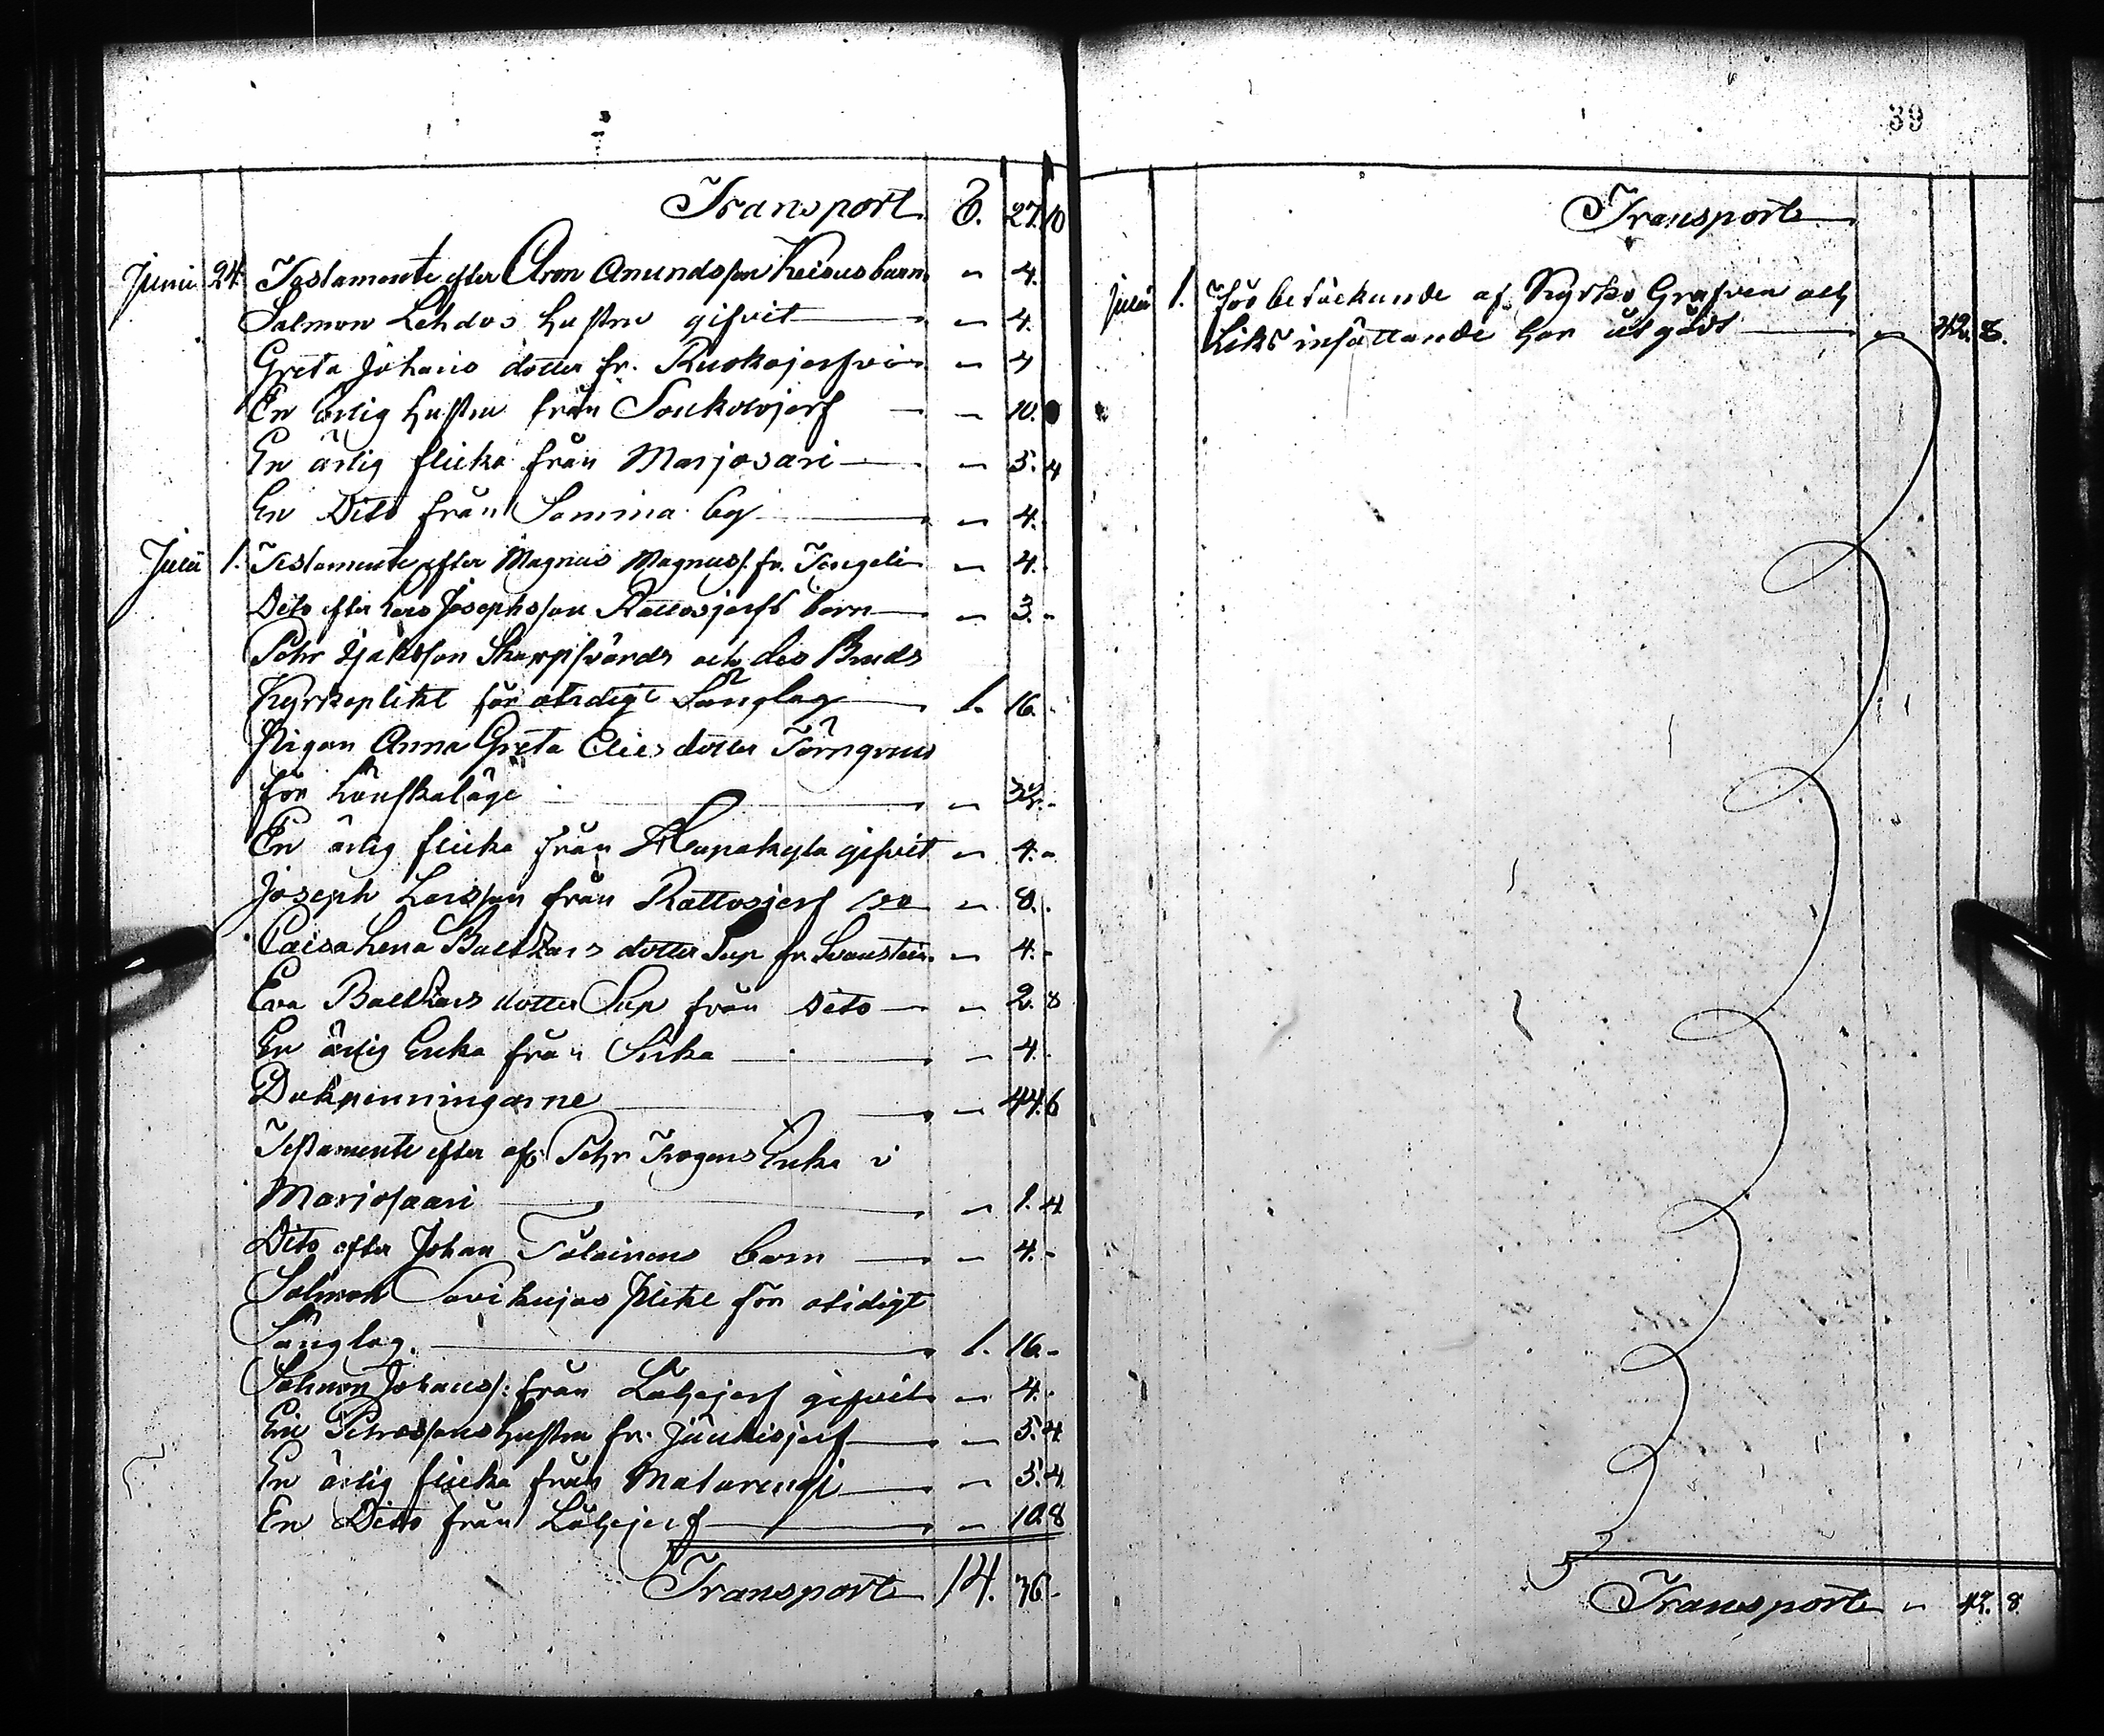 Transport 8. 27. 10
Juni 24. Testamente efter Aron Anundsson Keisus barn " 4.
Salmon Lehdos hustru gifvit " 4.
Greta Johans dotter fr. Ruokojerfvi " 4
En ärlig hustru från Soukolojerf " 10.
En ärlig flicka från Marjosari " 5. 4
En Dito från Samma by " 4.
Julii 1. Testamente efter Magnus Magnuss. fr. Tengeli " 4.
Dito efter Lars Josephsson Rattosjerfs barn " 3. -
Pehr Isaksson Skarpsvärds och des Bruds
Kyrkoplikt för otidigt Sänglag 1. 16. -
Pigan Anna Greta Elies dotter Törngrens
för Lönskaläge " 32. -
En ärlig flicka från Haapakylä gifvit " 4. -
Joseph Larsson från Rattosjerf " 8.
Caisa Lena Balthars dotter Sup fr. Svanstein " 4. -
Eva Balthars dotter Sup från dito " 2. 8
En ärlig Enka från Sirka " 4.
Dukpenningarne " 44. 6
Testamente efter afl. Pehr Krogens Enka i
Marjosaari " 1. 4
Dito efter Johan Tolainens barn " 4. -
Salmon Savikujas plikt för otidigt
Sänglag. 1. 16. -
Salmon Johanss: från Lohijerf gifvit " 4.
Eric Petterssons hustru fr. Juukisjerf " 5. 4.
En ärlig flicka från Matarengi " 5. 4.
En Dito från Lohijerf " 10. 8
Transport 14. 36. -
39
Transport
Julii 1. För betäckande af Kyrko Grafven och
Liks insättande har utgådt " 42. 8.
Transport " 42. 8.